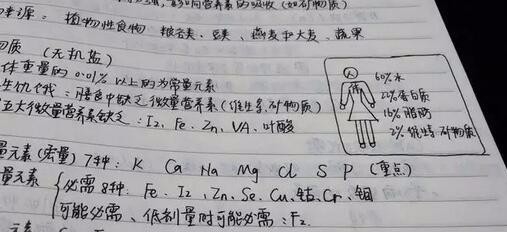 影响营养素的吸收(如矿物质)
来源: 植物性食物 粮谷类、豆类、燕麦和大麦、蔬果
物质 (无机盐)
体重量的0.01%以上的为常量元素
性饥饿:膳食中缺乏微量营养素(维生素、矿物质)
五大微量营养素缺乏:I₂, Fe, Zn, VA, 叶酸
量元素(宏量)7种: K Ca Na Mg Cl S P (重点)
量元素
必需8种: Fe, I₂, Zn, Se, Cu, 钴, Cr, 钼
可能必需、低剂量时可能必需: F₂.
60%水
22%蛋白质
16%脂肪
2%维生素、矿物质